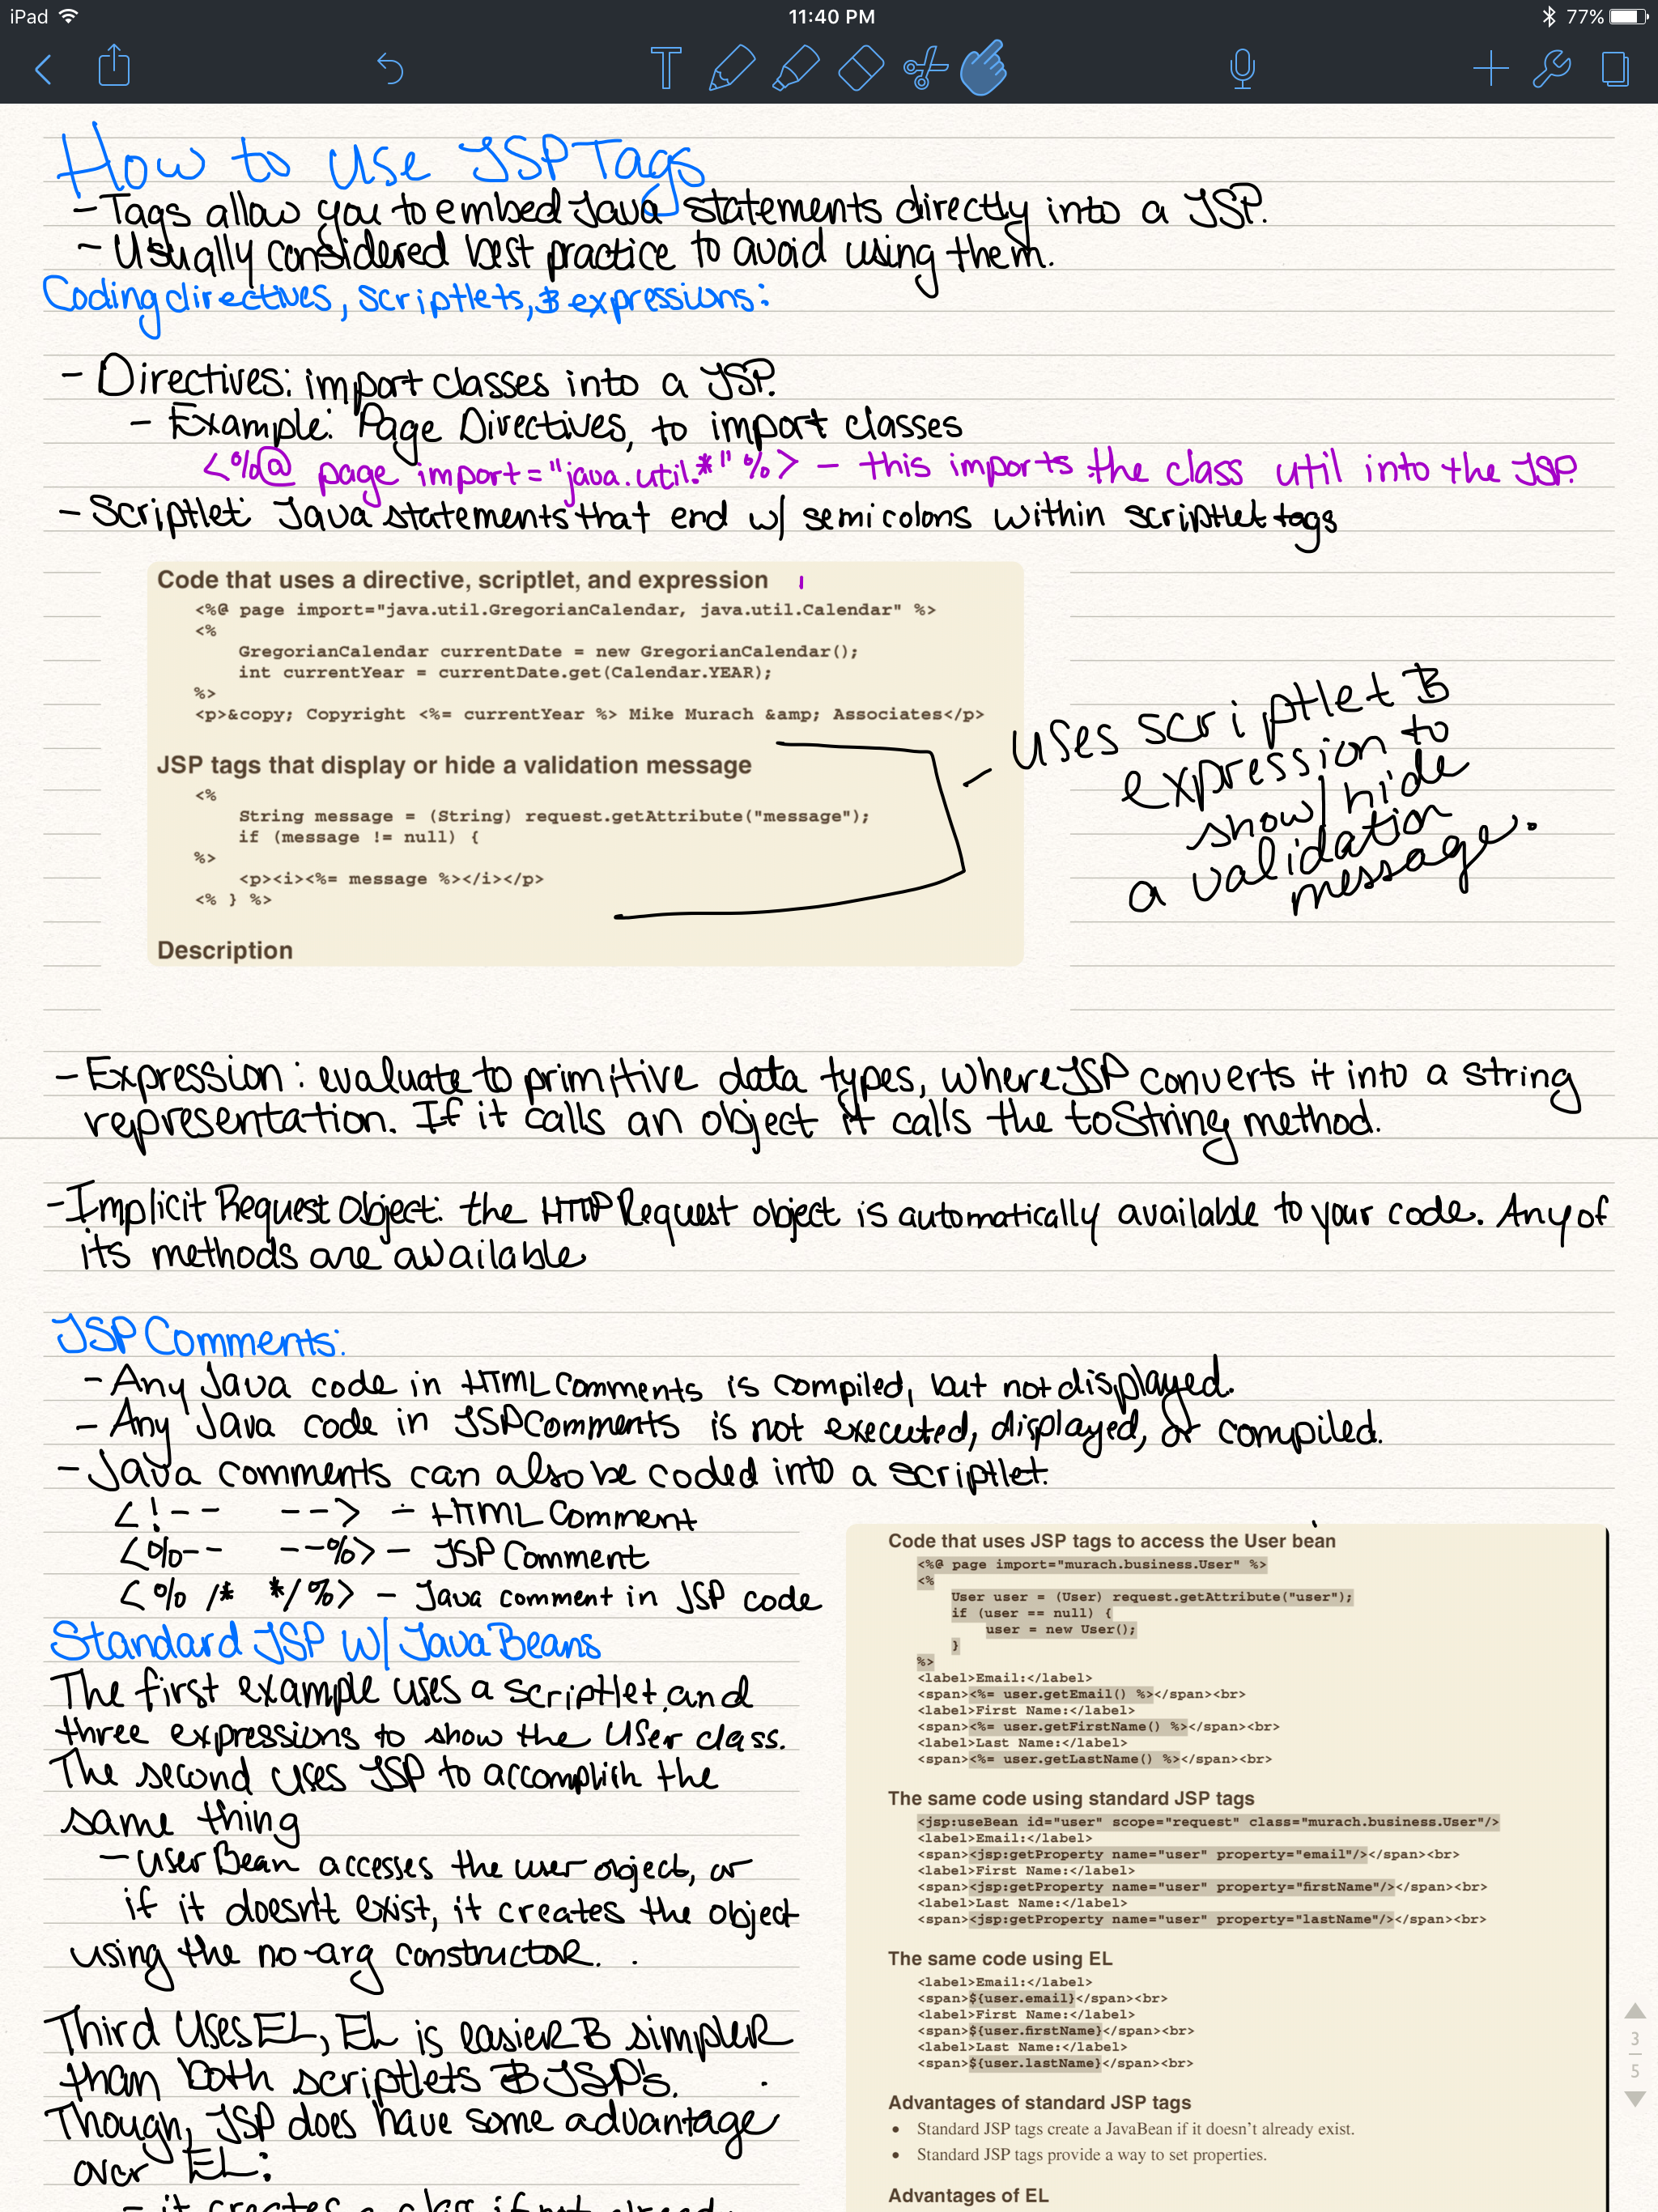 iPad
11:40 PM
77%
T
How to Use JSP Tags
- Tags allow you to embed Java statements directly into a JSP.
- Usually considered best practice to avoid using them.
Coding directives, scriptlets, & expressions:
- Directives: import classes into a JSP.
- Example: Page Directives, to import classes
<%@ page import="java.util.*" %> - this imports the class util into the JSP.
- Scriptlet: Java statements that end w/ semicolons within scriptlet tags
Code that uses a directive, scriptlet, and expression
<%@ page import="java.util.GregorianCalendar, java.util.Calendar" %>
<%
GregorianCalendar currentDate = new GregorianCalendar();
int currentYear = currentDate.get(Calendar.YEAR);
%>
<p>&copy; Copyright <%= currentYear %> Mike Murach &amp; Associates</p>
JSP tags that display or hide a validation message
<%
String message = (String) request.getAttribute("message");
if (message != null) {
%>
<p><i><%= message %></i></p>
<% } %>
Description
- uses scriptlet &
expression to
show/hide
a validation
message.
- Expression: evaluate to primitive data types, where JSP converts it into a string
representation. If it calls an object it calls the toString method.
- Implicit Request Object: the HTTP Request object is automatically available to your code. Any of
its methods are available
JSP Comments:
- Any Java code in HTML Comments is compiled, but not displayed.
- Any Java code in JSP Comments is not executed, displayed, or compiled.
- Java comments can also be coded into a scriptlet.
<!-- --> - HTML Comment
<%-- --%> - JSP Comment
<% /* */ %> - Java comment in JSP code
Standard JSP w/ Java Beans
The first example uses a scriptlet, and
three expressions to show the User class.
The second uses JSP to accomplish the
same thing
- User Bean accesses the user object, or
if it doesn't exist, it creates the object
using the no-arg constructor.
Third Uses EL, EL is easier & simpler
than both scriptlets & JSP's.
Though, JSP does have some advantage
over EL:
- it creates a class if not already
Code that uses JSP tags to access the User bean
<%@ page import="murach.business.User" %>
<%
User user = (User) request.getAttribute("user");
if (user == null) {
user = new User();
}
%>
<label>Email:</label>
<span><%= user.getEmail() %></span><br>
<label>First Name:</label>
<span><%= user.getFirstName() %></span><br>
<label>Last Name:</label>
<span><%= user.getLastName() %></span><br>
The same code using standard JSP tags
<jsp:useBean id="user" scope="request" class="murach.business.User"/>
<label>Email:</label>
<span><jsp:getProperty name="user" property="email"/></span><br>
<label>First Name:</label>
<span><jsp:getProperty name="user" property="firstName"/></span><br>
<label>Last Name:</label>
<span><jsp:getProperty name="user" property="lastName"/></span><br>
The same code using EL
<label>Email:</label>
<span>${user.email}</span><br>
<label>First Name:</label>
<span>${user.firstName}</span><br>
<label>Last Name:</label>
<span>${user.lastName}</span><br>
Advantages of standard JSP tags
• Standard JSP tags create a JavaBean if it doesn't already exist.
• Standard JSP tags provide a way to set properties.
Advantages of EL
3
5